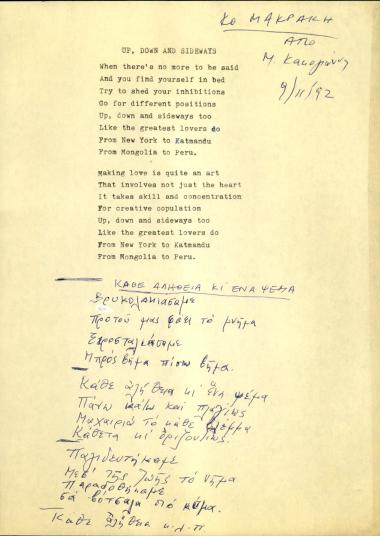 Κο ΜΑΚΡΑΚΗ
ΑΠΟ
Μ. Κακογιάννη
9/11/92
UP, DOWN AND SIDEWAYS
When there's no more to be said
And you find yourself in bed
Try to shed your inhibitions
Go for different positions
Up, down and sideways too
Like the greatest lovers do
From New York to Katmandu
From Mongolia to Peru.
Making love is quite an art
That involves not just the heart
It takes skill and concentration
For creative copulation
Up, down and sideways too
Like the greatest lovers do
From New York to Katmandu
From Mongolia to Peru.
ΚΑΘΕ ΑΛΗΘΕΙΑ ΚΙ ΕΝΑ ΨΕΜΑ
Βρυκολακιάσαμε
Προτού μας φάει το μνήμα
Ξεροσταλιάσαμε
Μπρος βήμα πίσω βήμα.
Κάθε αλήθεια κι ένα ψέμα
Πάνω κάτω και πλαγίως
Μαχαιριά το κάθε βλέμμα
Κάθετα κι οριζοντίως.
Παλιδευτήκαμε
Μεσ' της ζωής το νήμα
Παραδοθήκαμε
σα βότσαλα στο κύμα.
Κάθε αλήθεια κ.λ.π.